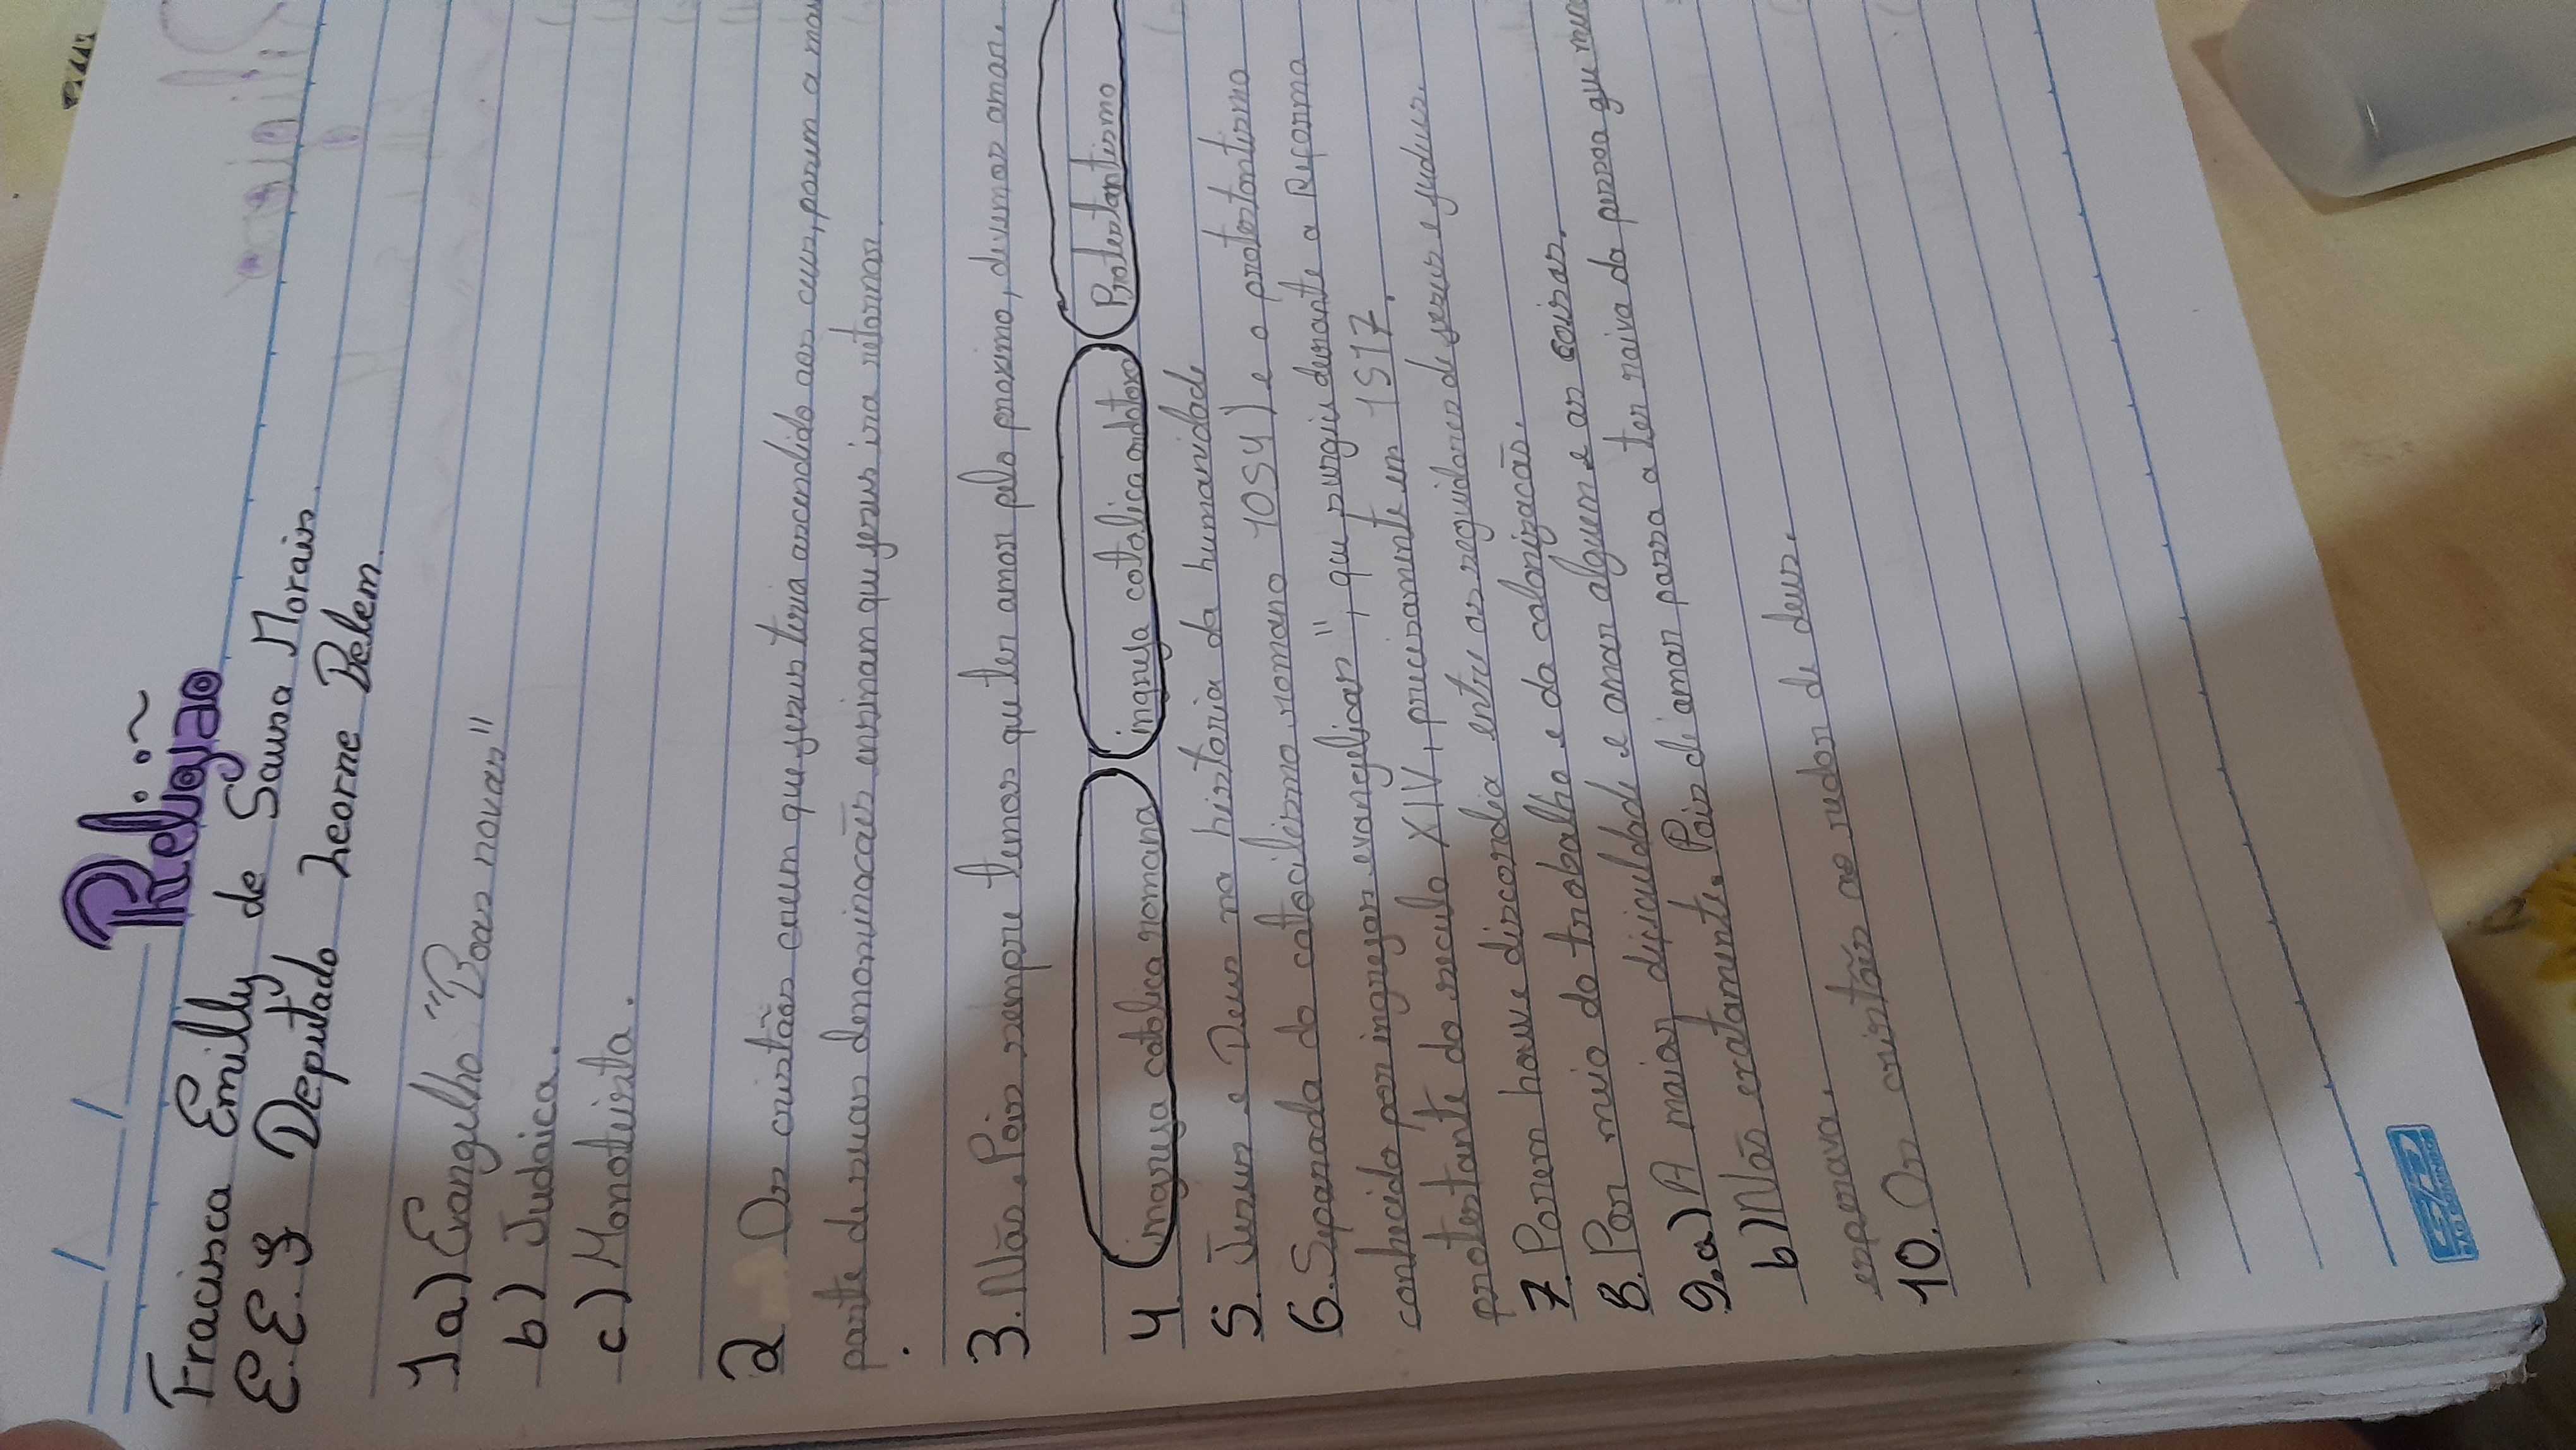 Religião
Fracisca Emilly de Sausa Morais.
E.E.F Deputado Leorne Belem.
1a) Evangelho "Boas novas"
b) Judaica.
c) Monoteista.
2 Os cristãos creem que jesus teria ascendido aos ceus, porem a
parte de suas denominacães ensinam que jesus ira retornar.
3. Não. Pois sempre temos que ter amor pelo proximo, devemos amar.
4. ingreja catolica romana ingreja catolica ordotoxa Protestantismo
5. Jesus e Deus na historia da humanidade
6. Separada do catocilismo romano 1054) e o protestantismo
conhecido por ingrejas evangelicas", que surgiu durante a Reforma
protestante do seculo XIV, precisamente em 1517.
7. Porem houve discordia entre os seguidores de jesus e judeus.
8. Por meio do trabalho e da colonizacão.
9.a) A maior dificuldade e amar alguem e as coisas.
b) Não exatamente. Pois de amar passa a ter raiva da pessoa que
esperava.
10. Os cristãos ao redor de deus.
SD
SÃO DOMINGOS